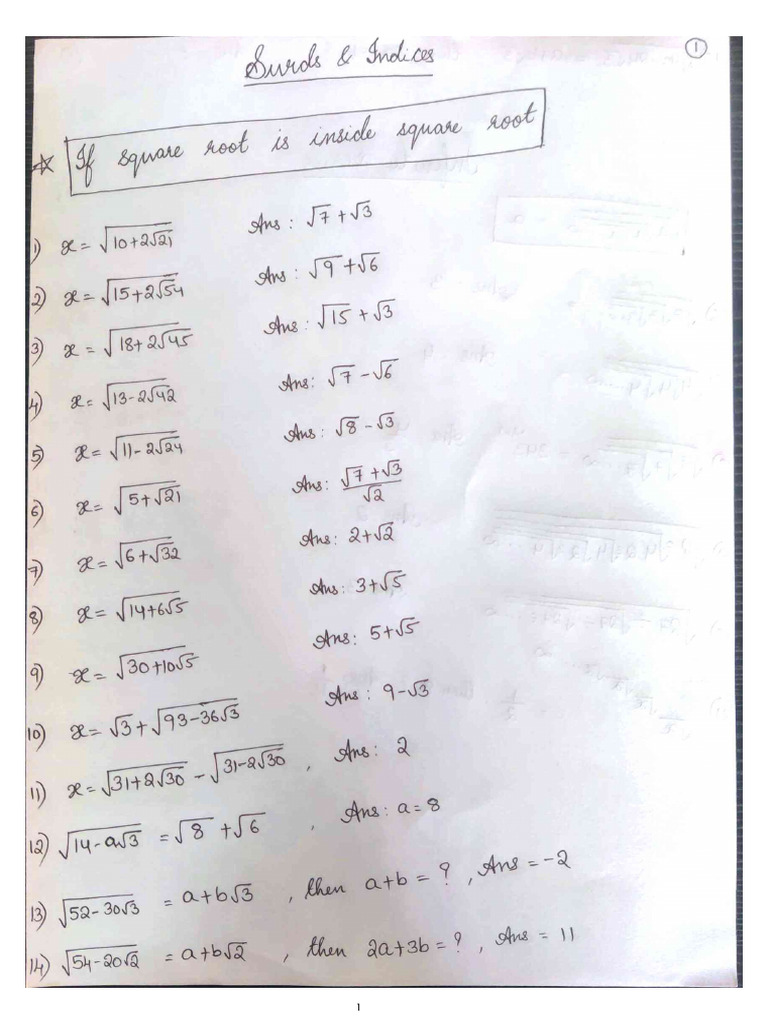 1
Surds & Indices
☆ If square root is inside square root
1) x = √(10+2√21) Ans: √7+√3
2) x = √(15+2√54) Ans: √9+√6
3) x = √(18+2√45) Ans: √15+√3
4) x = √(13-2√42) Ans: √7-√6
5) x = √(11-2√24) Ans: √8-√3
6) x = √(5+√21) Ans: (√7+√3)/√2
7) x = √(6+√32) Ans: 2+√2
8) x = √(14+6√5) Ans: 3+√5
9) x = √(30+10√5) Ans: 5+√5
10) x = √3+√(93-36√3) Ans: 9-√3
11) x = √(31+2√30) - √(31-2√30) , Ans: 2
12) √(14-a√3) = √8+√6 , Ans: a=8
13) √(52-30√3) = a+b√3 , then a+b=? , Ans = -2
14) √(54-20√2) = a+b√2 , then 2a+3b=? , Ans = 11
1